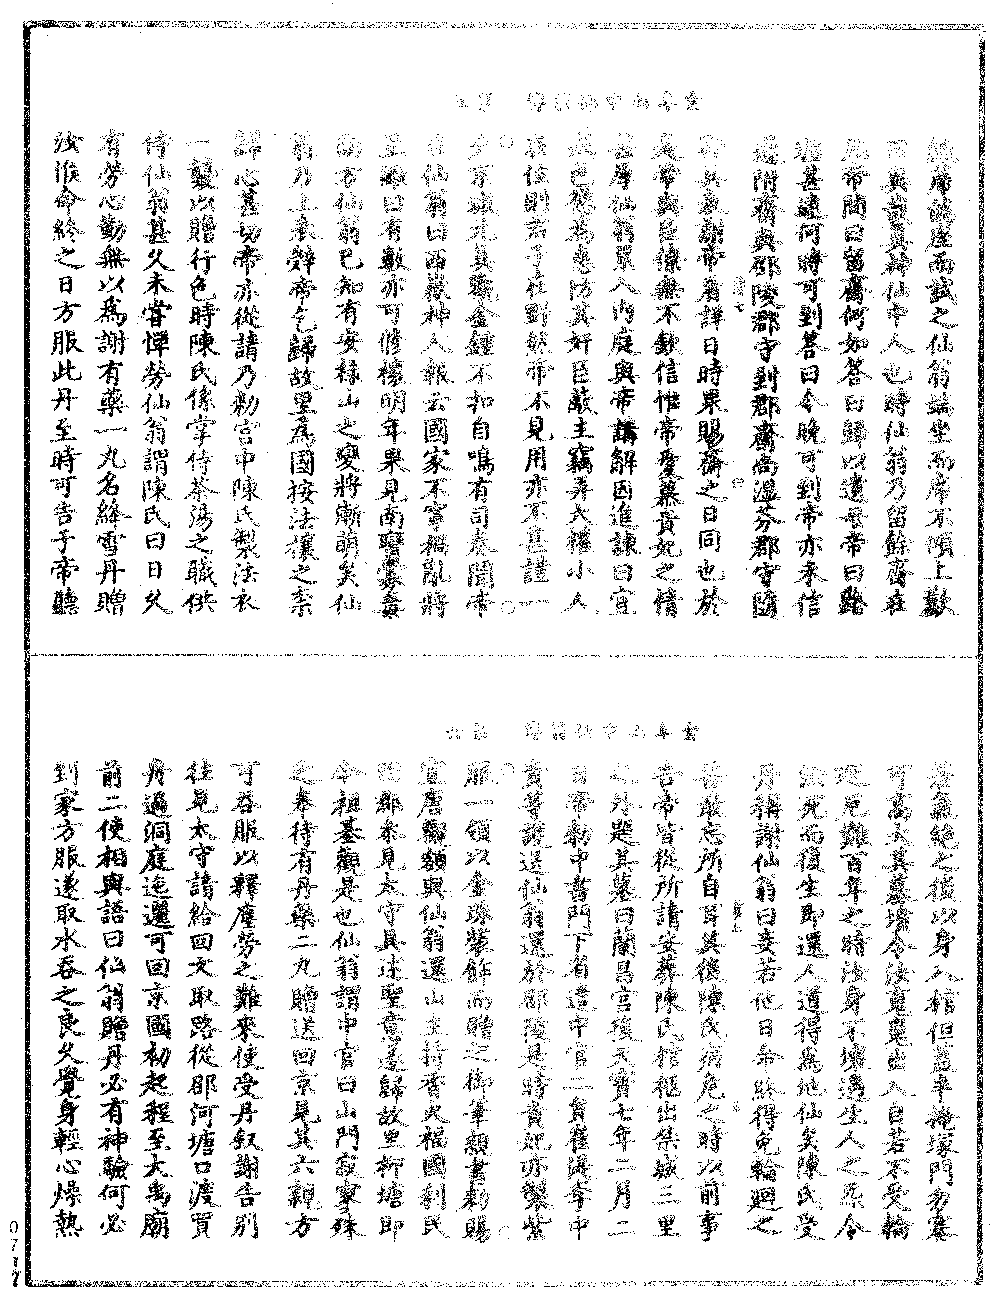 雲阜山申仙翁傳 第五
席滿座而試之仙翁端坐而席不傾上歎
曰真證真神仙中人也時仙翁乃留餘齋在
帝問曰留齋何如答曰歸以遺母帝曰路
途甚遠何時可到答曰今晚可到帝亦未信
遂附齋與邵陵郡守到郡齋尚溫芬郡守隨
即具表謝帝看詳日時果賜齋之日同也於
是帝與臣僚無不欽信惟帝愛藥貴妃之情
甚厚仙翁累入內庭與帝講解因進諫曰宜
遠色慾為患防其奸臣蔽主竊弄大權小人
在位則君子在野然帝不見用亦不甚謹一
夕不其金鍾不扣自鳴有司奏聞帝
召仙翁曰西嶽神人報云國家不寧禍亂將
至雖曰有數亦可脩禳明年果見南蠻
南方仙翁已知有安祿山之變將漸萌矣仙
翁乃上表辭帝乞歸故里為國按法禳之奈
歸心甚切帝亦從請乃勑宮中陳氏製法衣
一襲以贈行色時陳氏係掌侍茶湯之職供
侍仙翁甚久未嘗憚勞仙翁謂陳氏曰日久
有勞心勤無以為謝有藥一丸名絳雪丹贈
汝俟命終之日方服此丹至時可告于帝聽
雲阜山申仙翁傳 第六
若氣絕之後以身入棺但蓋平掩塚門勿塞
可高大其墓壙令汝魂魄出入自若不受輪
迴免難百年之時汝身不壞遇生人之炁令
汝死而復生即還人道得為地仙矣陳氏受
丹稱謝仙翁曰妾若他日命終得免輪迴之
苦敢忘所自耳其後陳氏病危之時以前事
告帝皆從所請安葬陳氏棺柩出禁城三里
之外題其墓曰蘭昌宮後天寶七年二月二
日帝勑中書門下省遣中官二員崔海李中
貴等護送仙翁還於邵陵是時貴妃亦製紫
服一領以金珠裝飾而贈之御筆額書勑賜
宣唐觀額與仙翁還山主持香火福國利民
回郡參見太守具述聖意遂歸故里柳塘即
今祖基觀是也仙翁謂中官曰山門寂寥殊
乏奉待有丹藥二丸贈送回京見其六親方
可吞服以釋塵勞之難來使受丹叙謝告別
往見太守請給回文取路從邵河塘口渡資
丹過洞庭迤邐可回京國初起程至大禹廟
前二使相與語曰仙翁贈丹必有神驗何必
到家方服遂取水吞之良久覺身輕心燥熱
0717